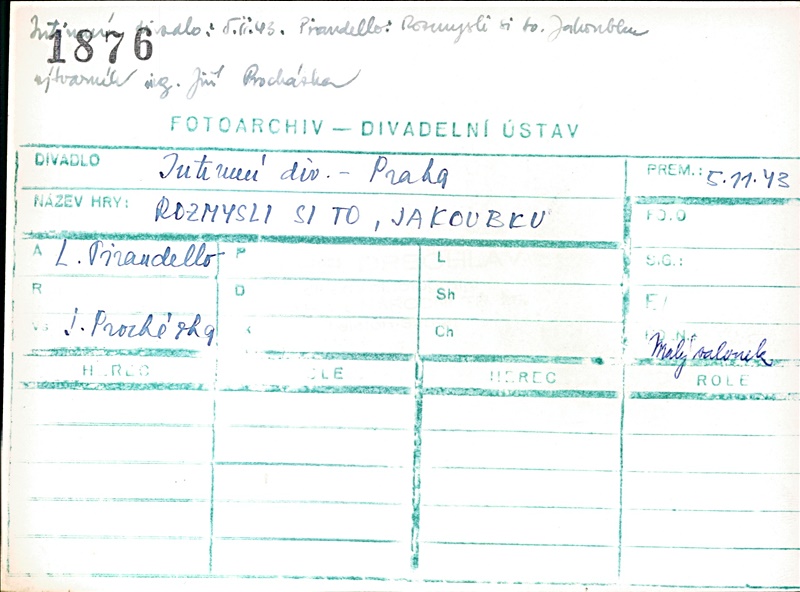 Intimní divadlo: 5.11.43. Pirandello: Rozmysli si to, Jakoubku
1876
výtvarník ing. Jiří Procházka
FOTOARCHIV — DIVADELNÍ ÚSTAV
DIVADLO Intimní div. - Praha PREM.: 5.11.43
NÁZEV HRY: ROZMYSLI SI TO, JAKOUBKU
A L. Pirandello P L S.G.:
R D Sh E/
J. Procházka Ch
Malý valounek
HEREC HEREC ROLE